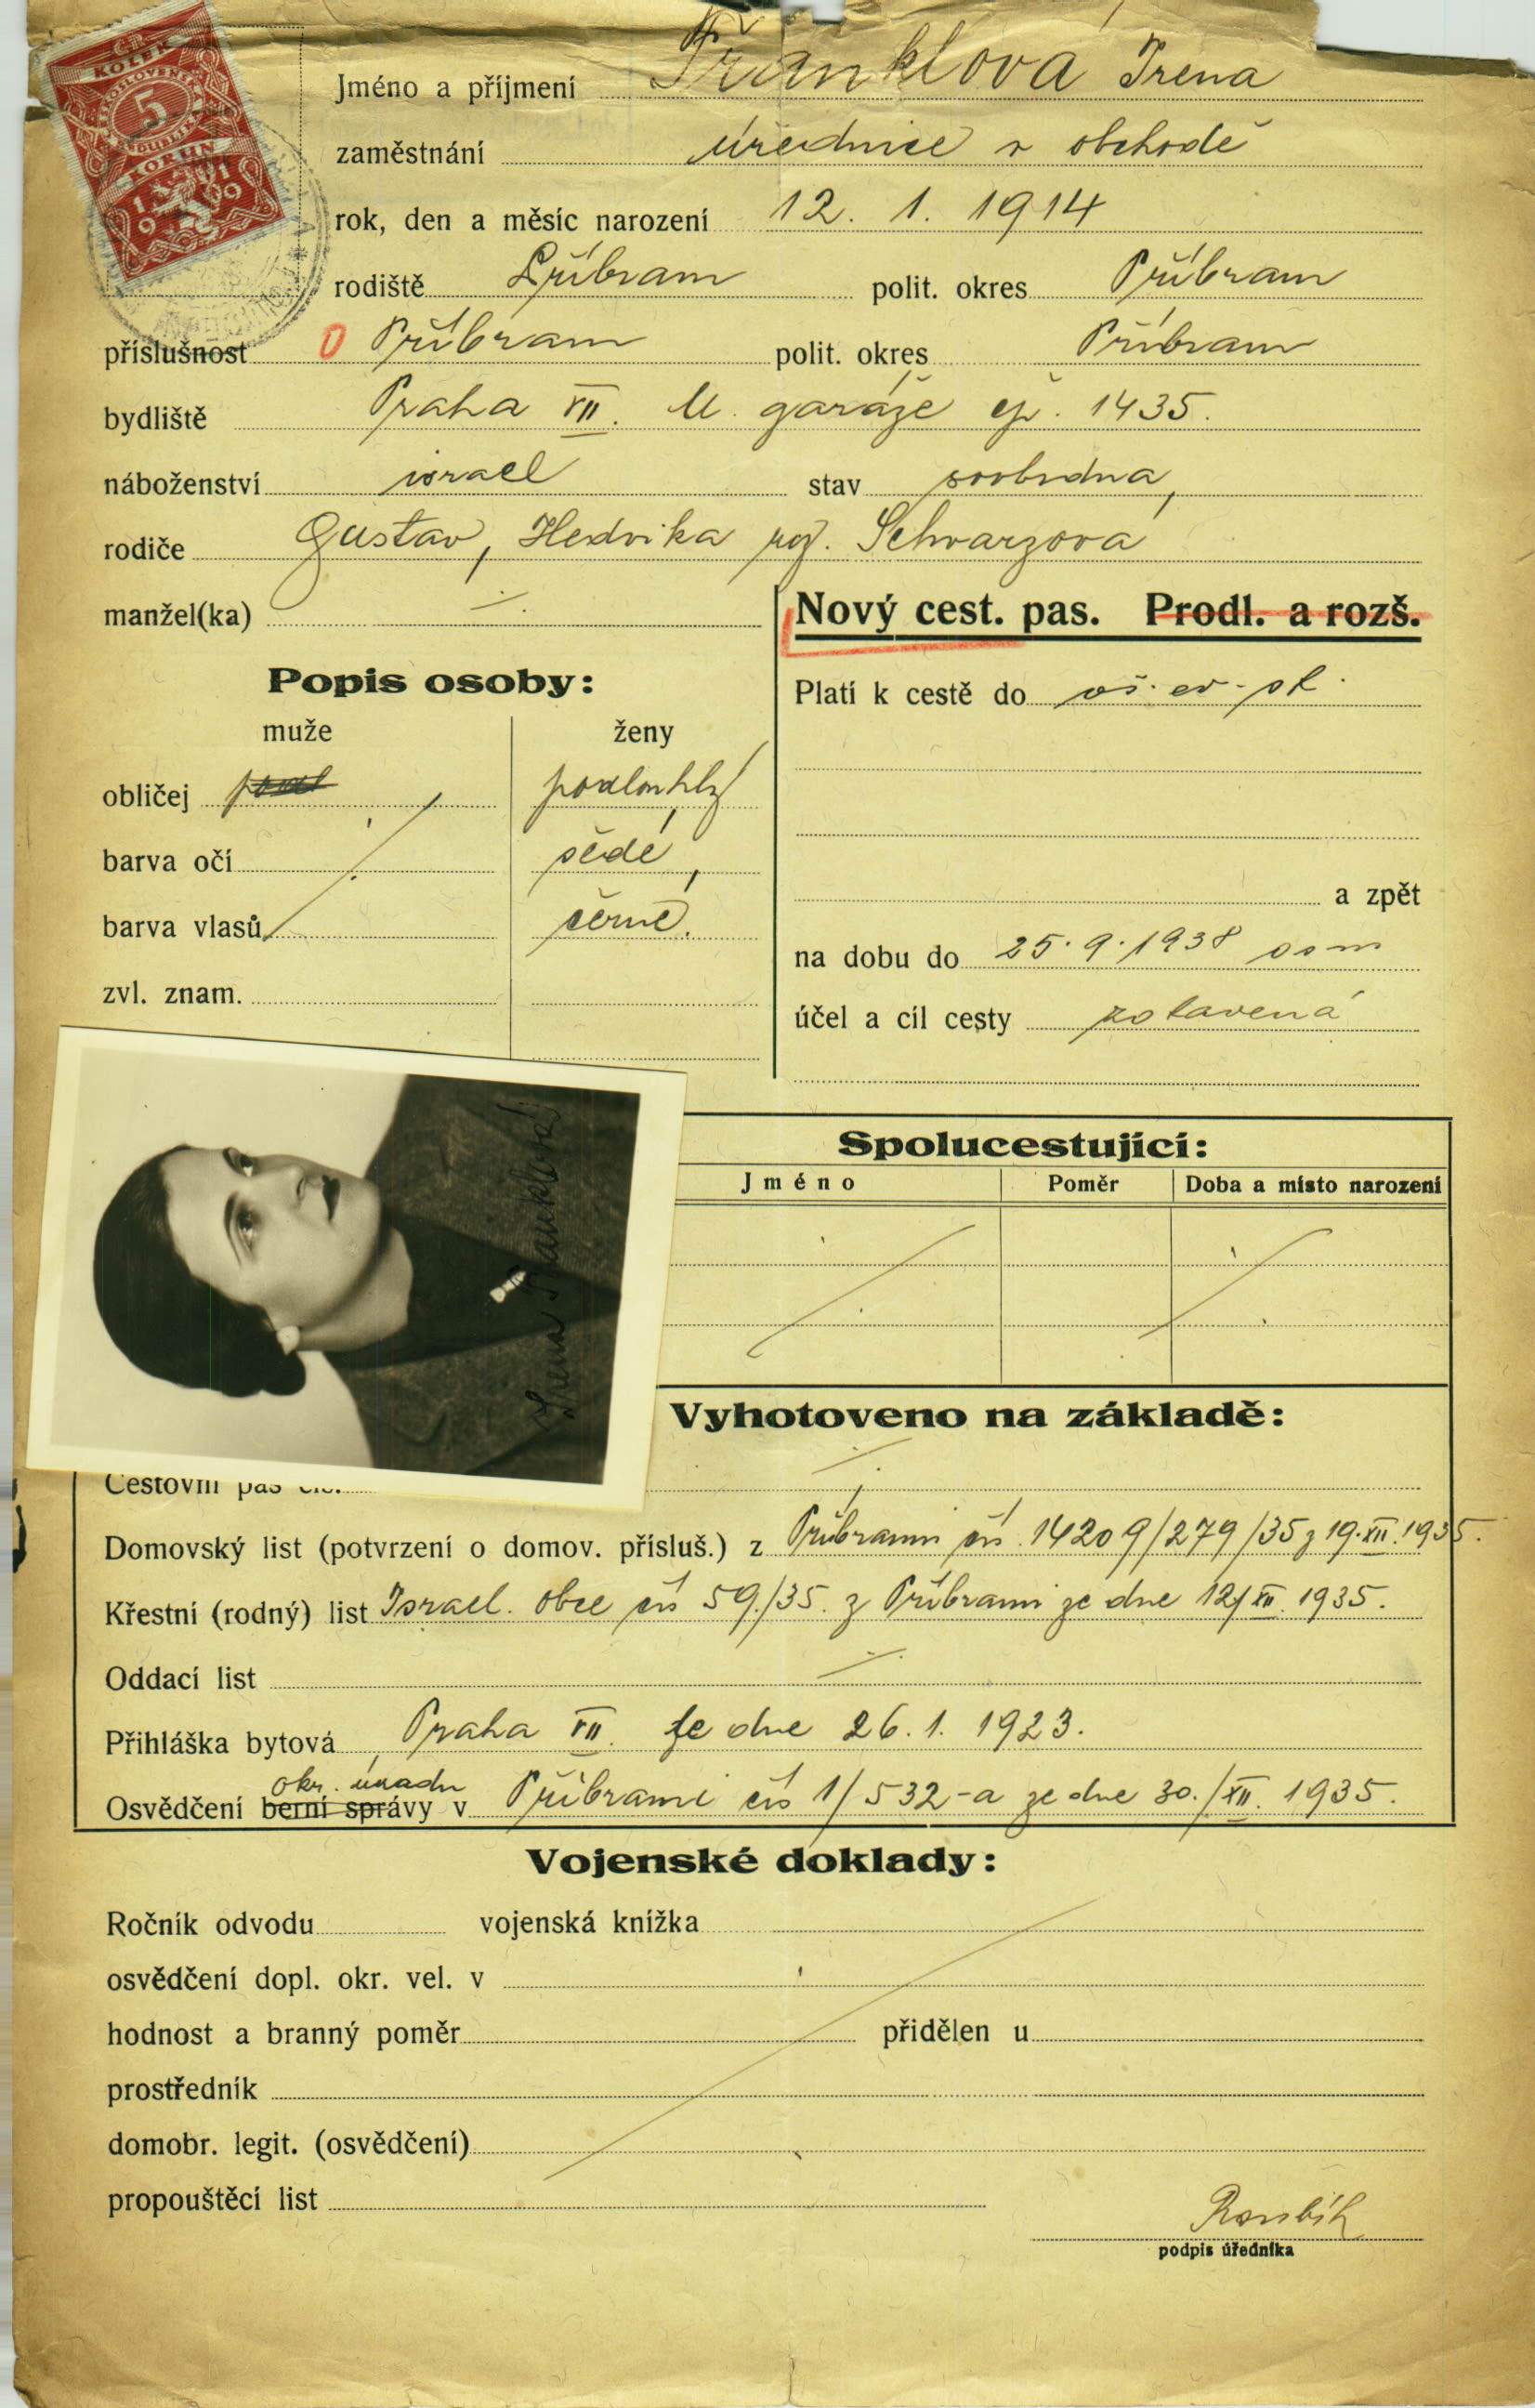 KOLEK
5
KORUN
1919
Jméno a příjmení Fränklová Irena
zaměstnání úřednice v obchodě
rok, den a měsíc narození 12. 1. 1914
rodiště Příbram polit. okres Příbram
příslušnost Příbram polit. okres Příbram
bydliště Praha VII. U garáže čp. 1435.
náboženství israel stav svobodná,
rodiče Gustav, Hedvika roz. Schwarzová
manžel(ka) ·/·
Nový cest. pas. Prodl. a rozš.
Popis osoby:
Platí k cestě do vš. ev. st.
muže ženy
obličej podl podlouhlý,
barva očí šedé,
barva vlasů černé.
a zpět
zvl. znam.
na dobu do 25. 9. 1938
účel a cíl cesty zotavená
Irena Fränklová
Spolucestující:
Jméno Poměr Doba a místo narození
Vyhotoveno na základě:
Cestovní pas čís. ·/·
Domovský list (potvrzení o domov. přísluš.) z Příbrami čís. 14209/279/35 z 19. XII. 1935.
Křestní (rodný) list Israel. obce čís 59./35. z Příbrami ze dne 12/XII. 1935.
Oddací list ·/·
Přihláška bytová Praha VII. ze dne 26. 1. 1923.
okr. úřadu
Osvědčení berní správy v Příbrami čís 1/532-a ze dne 30./XII. 1935.
Vojenské doklady:
Ročník odvodu vojenská knížka
osvědčení dopl. okr. vel. v
hodnost a branný poměr přidělen u
prostředník
domobr. legit. (osvědčení)
propouštěcí list
podpis úředníka